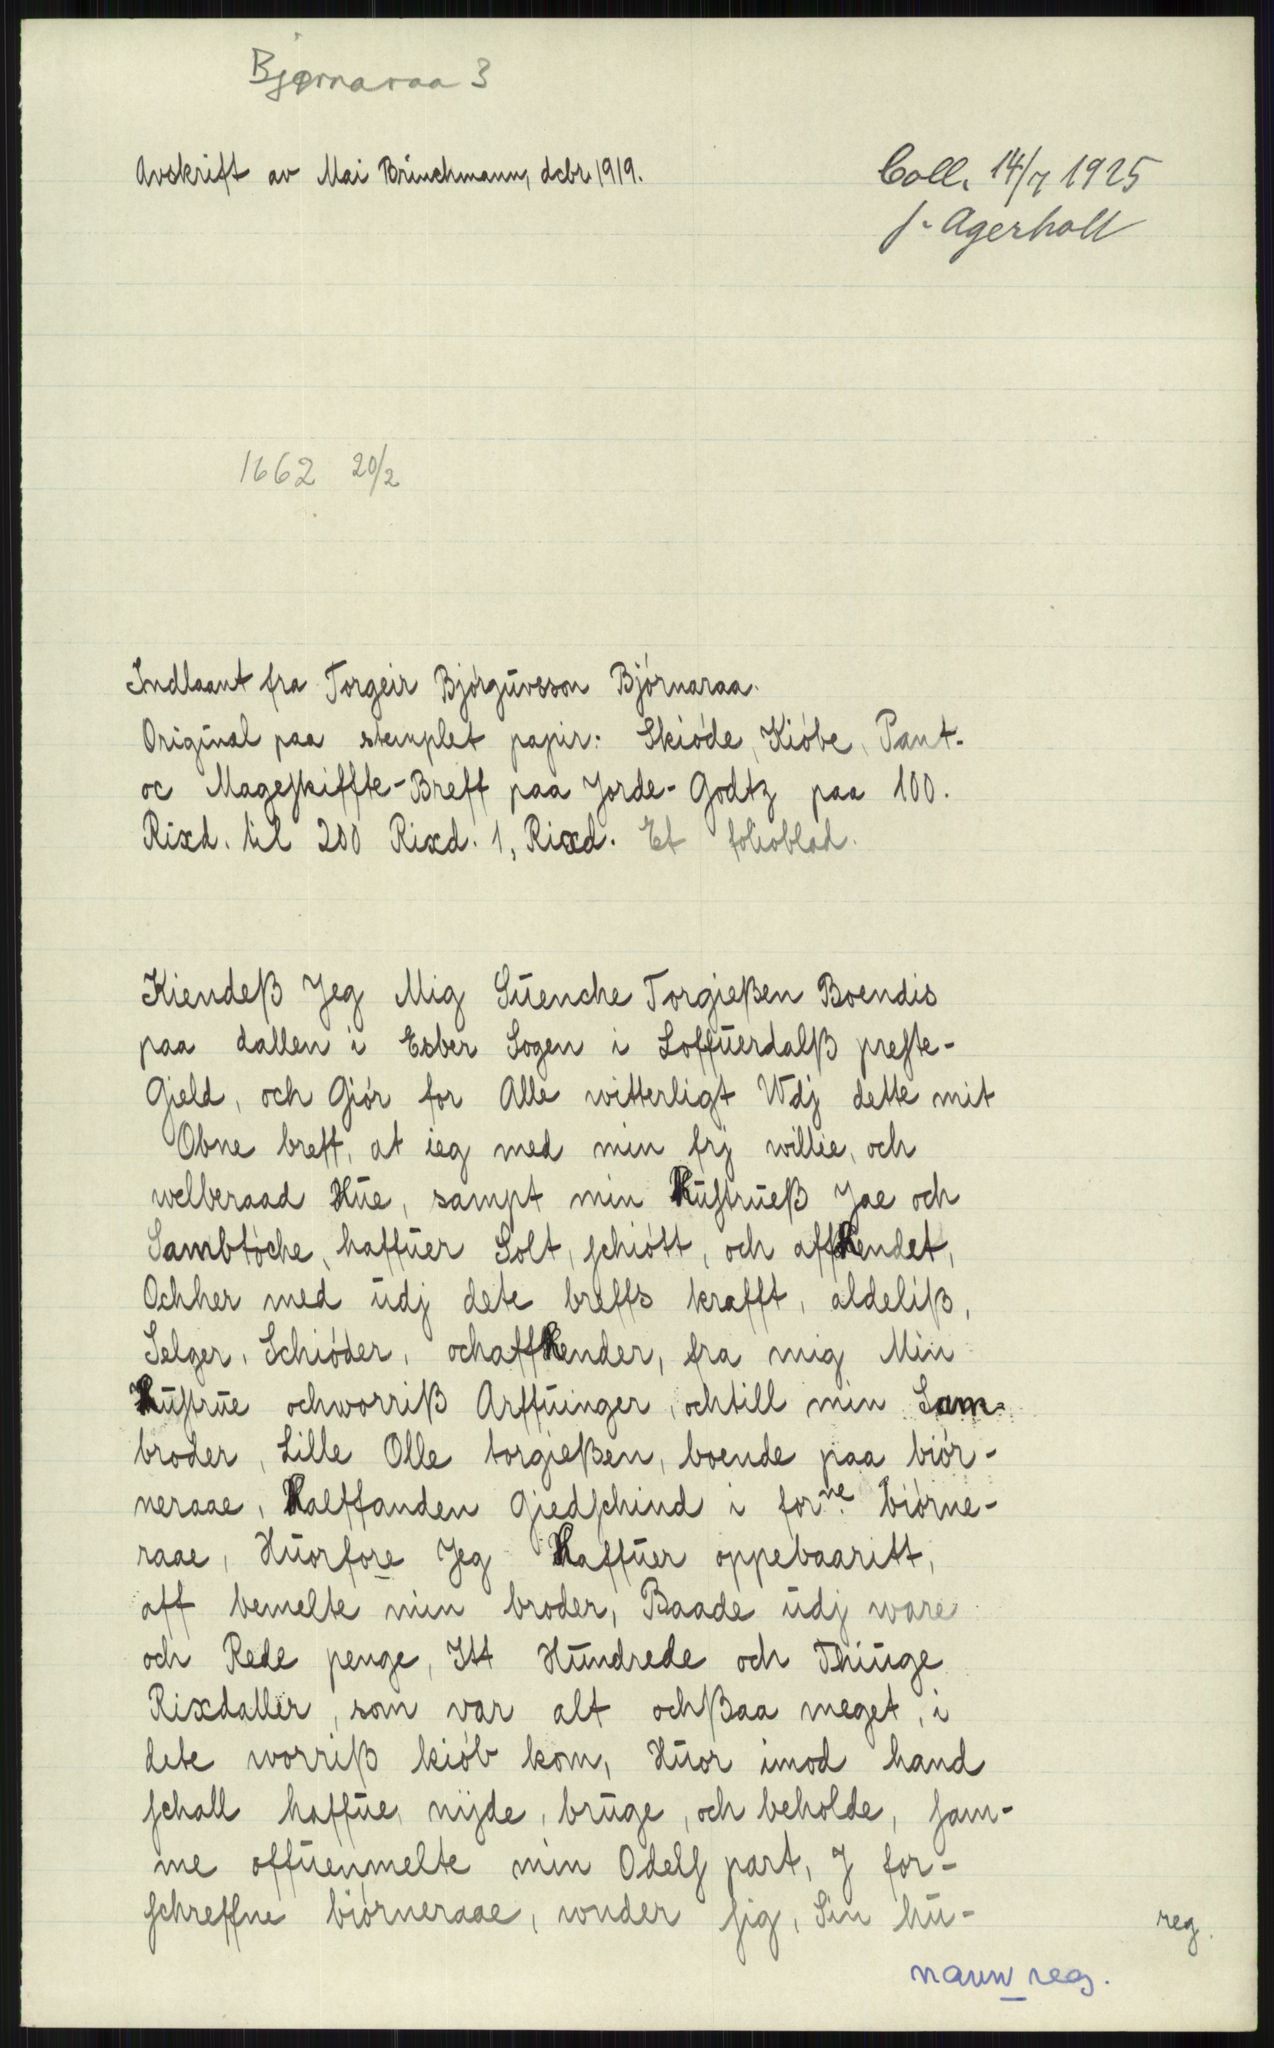 Bjørnaraa 3
Avskrift av Mai Brinchmann, dcbr 1919.
Coll. 14/7 1925
P. Agerholt
1662 20/2
Indlaant fra Torgeir Bjørguvsson Bjørnaraa.
Original paa stemplet papir: Skiøde, Kiøbe, Pant-
oc Mageskiffte-Breff paa Jorde-Godtz paa 100.
Rixd. til 200 Rixd. 1, Rixd. Et folioblad.
Kiendeß Jeg Mig Suenche Torgießen Boendis
paa dallen i Esber Sogen i Loffuerdalß preste-
Gield, och Giør for Alle witterligt Wdj dette mit
Obne breff, at ieg med min frj willie, och
welberaad Hue, sampt min Hustrueß Jae och
Sambtøche, haffuer Solt, schiøtt, och affhendet,
Ochher med udj dete breffs krafft, aldeliß,
Selger, Schiøder, ochaffhender, fra mig Min
Hustrue ochworriß Arffuinger, ochtill min Sam-
broder, Lille Olle torgießen, boende paa biør-
neraae, Halffanden Giedschind i forne biørne-
raae, Huorfore Jeg Haffuer oppebaaritt,
aff bemelte min broder, Baade udj ware
och Rede penge, Itt Hundrede och Thiuge
Rixdaller, som var alt ochßaa meget, i
dete worriß kiøb kom, Huor imod hand
schall haffue, nyde, bruge, och beholde, sam-
me offuenmelte min Odels part, J for-
schreffne biørneraae, wnder sig, Sin hu-
reg.
navn reg.